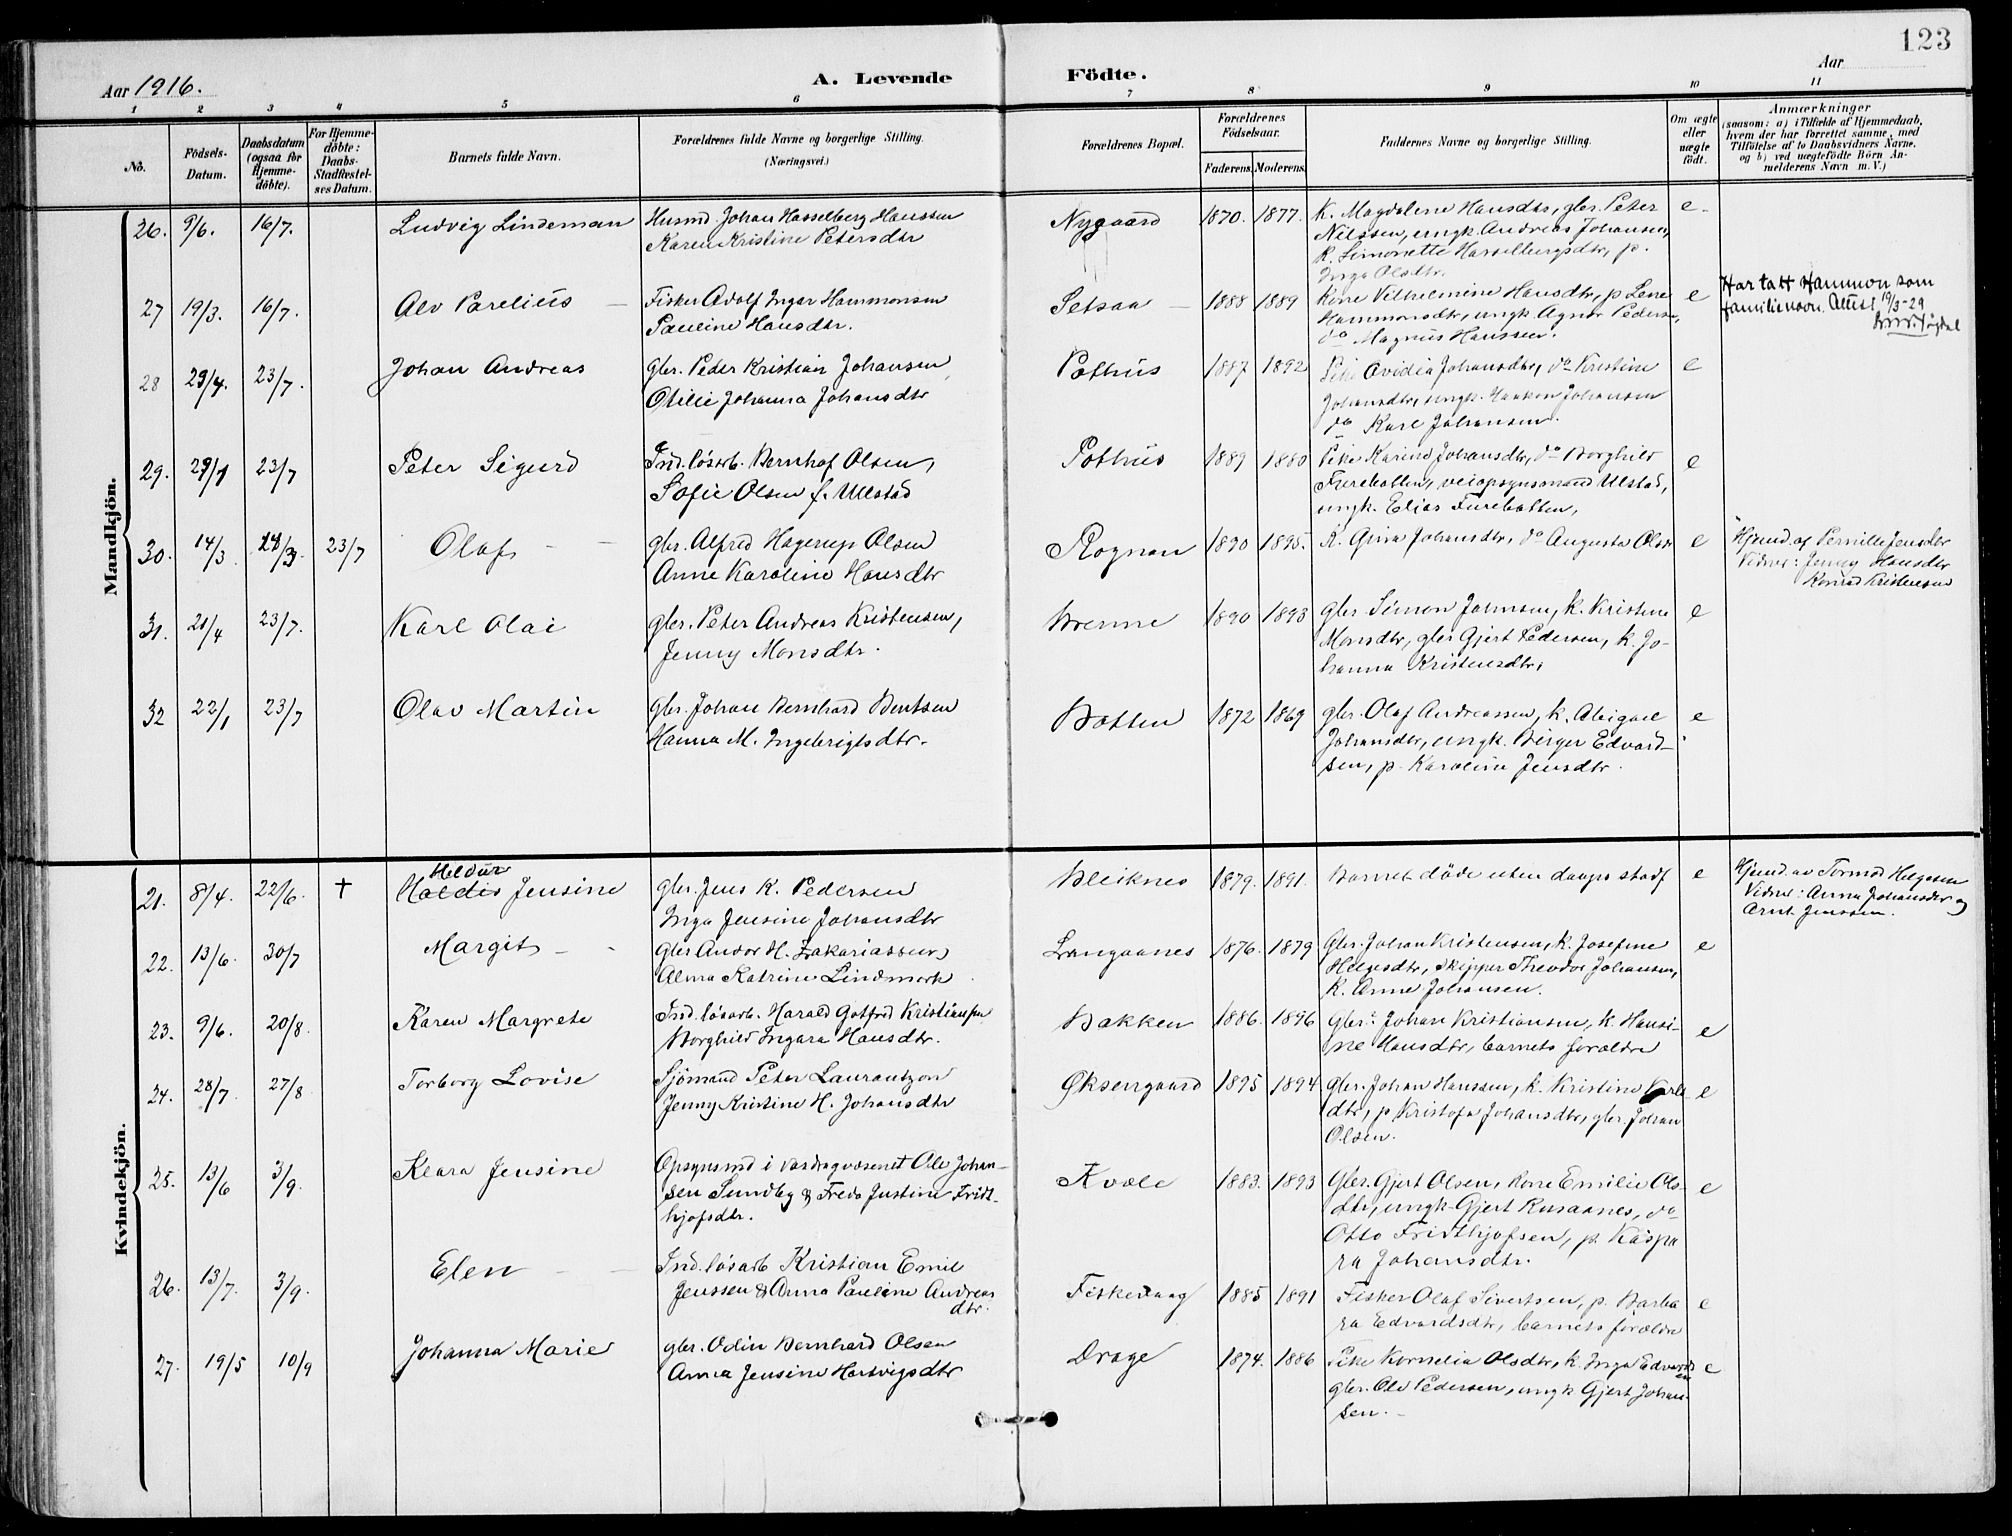 123
Aar 1916.
A. Levende Födte.
Aar
1 2 3 4 5 6 7 8 9 10 11
No.
Födsels-
Datum.
Daabsdatum
(ogsaa for
Hjemme-
döbte).
For Hjemme-
döbte:
Daabs-
Stadfæstel-
ses Datum.
Barnets fulde Navn.
Forældrenes fulde Navne og borgerlige Stilling.
(Næringsvei.)
Forældrenes Bopæl.
Forældrenes
Födselsaar.
Faderens. Moderens.
Faddernes Navne og borgerlige Stilling.
Om ægte
eller
uægte
födt.
Anmærkninger
(saasom: a) i Tilfælde af Hjemmedaab,
hvem der har forrettet samme, med
Tilföielse af to Daabsvidners Navne,
og b) ved uægtefödte Börn An-
melderens Navn m. V.)
Mandkjön.
26. 9/6. 16/7. Ludvig Lindeman
Husmd. Johan Hasselberg Hanssen
Karen Kristine Petersdtr
Nygaard 1870. 1877.
K. Magdalene Hansdtr, gbr. Peter
Nilssen, ungk. Andreas Johansen,
k. Simonette Hasselbergsdtr, p.
Inga Olsdtr.
e
27 19/3. 16/7. Alv Parelius
Fisker Adolf Inger Hammonsen
Pauline Hansdtr.
Setsaa 1888 1889
Kone Vilhelmine Hansdtr, p Lene
Hammonsdtr, ungk. Agnar Pedersen,
do Magnus Hanssen.
e
Har tatt Hammon som
familienavn. Attest 19/3-29
28 29/4. 23/7. Johan Andreas
gbr. Peder Kristian Johansen
Otilie Johanna Johansdtr
Pothus 1887 1892
Pike Avidia Johansdtr, do Kristine
Johansdtr, ungk. Haakon Johansen
do Karl Johansen.
e
29. 29/1 23/7 Peter Sigurd
Ind. løsarb. Bernhof Olsen,
Sofie Olsen f. Ulstad
Pothus 1889 1880
Pike Karine Johansdtr, do Borghild
Furebotten, veiopsynsmand Ulstad,
ungk. Elias Furebotten,
e
30. 14/3 23/7 Olaf
gbr. Alfred Hagerup Olsen
Anne Karoline Hansdtr
Rognan 1890 1895.
K. Gina Johansdtr, do Augusta Olsdtr
e
Hjemd. af Pernille Jensdtr
Vidner: Jenny Hansdtr
Konrad Kristensen
31. 21/4 23/7. Karl Olai
gbr. Peter Andreas Kristensen,
Jenny Monsdtr.
Brenne 1890 1893
gbr. Simon Johnsen, k. Kristine
Monsdtr, gbr Gjert Pedersen, k. Jo-
hanna Kristensdtr.
e
32 22/1 23/7 Olav Martin
gbr. Johan Bernhard Bentsen
Hanna M. Ingebrigtsdtr.
Botten 1872 1869
gbr. Olaf Andreassen, k. Abigael
Johansdtr, ungk. Birger Edvard-
sen, p. Karoline Jensdtr.
e
Kvindekjön.
21. 8/4. 22/6. † Heldur
Haldis Jensine
gbr. Jens K. Pedersen
Inga Jensine Johansdtr
Bleiknes 1879. 1891.
Barnet døde uten daaps stadf
e
Hjemd. av Tormod Helgesen
Vidner: Anna Johansdtr og
Arnt Jenssen.
22. 13/6. 30/7 Margit
Gbr. Andor H. Zakariassen
Alma Katrine Lindmark
Langaanes 1876. 1879
Gbr. Johan Kristensen, k. Josefine
Helgesdtr, skipper Theodor Johansen,
k. Anne Johansen.
e
23. 9/6. 20/8. Karen Margrete
Ind. løsarb. Harald Gotfred Kristiansen
Borghild Ingara Hansdtr.
Bakken 1886. 1896
Gbr. Johan Kristiansen, k. Hansi-
ne Hansdtr, barnets forældre
e
24. 28/7 27/8 Torborg Lovise
Sjömand Peter Laurantzon
Jenny Kristine H. Johansdtr
Øksengaard 1895 1894
gbr. Johan Hanssen, k. Kristine Karls-
dtr, p Kristofa Johansdtr, gbr. Johan
Olsen.
e
25. 13/6 3/9. Klara Jensine
Opsynsmd i vasdragvæsenet Ole Johan-
sen Sundby & Freda Justine Fridt-
hjofsdtr.
Kvæle 1883. 1893
Gbr. Gjert Olsen, kone Emilie Ols-
dtr, ungk. Gjert Rusaanes, do
Otto Fridthjofsen, p. Kaspa
ra Johansdtr.
e
26. 13/7. 3/9. Elen
Ind. løsarb Kristian Emil
Jenssen & Anna Pauline Andreas
dtr.
Fiskevaag 1885 1891
Fisker Olaf Sivertsen, p. Barba
ra Edvardsdtr, barnets forældre
e
27. 19/5 10/9 Johanna Marie
gbr. Odin Bernhard Olsen
Anna Jensine Hartvigsdtr
Drage 1874. 1886
Pike Kornelia Olsdtr, k. Inga Edvardsen
gbr. Ole Pedersen, ungk Gjert Johan-
sen.
e